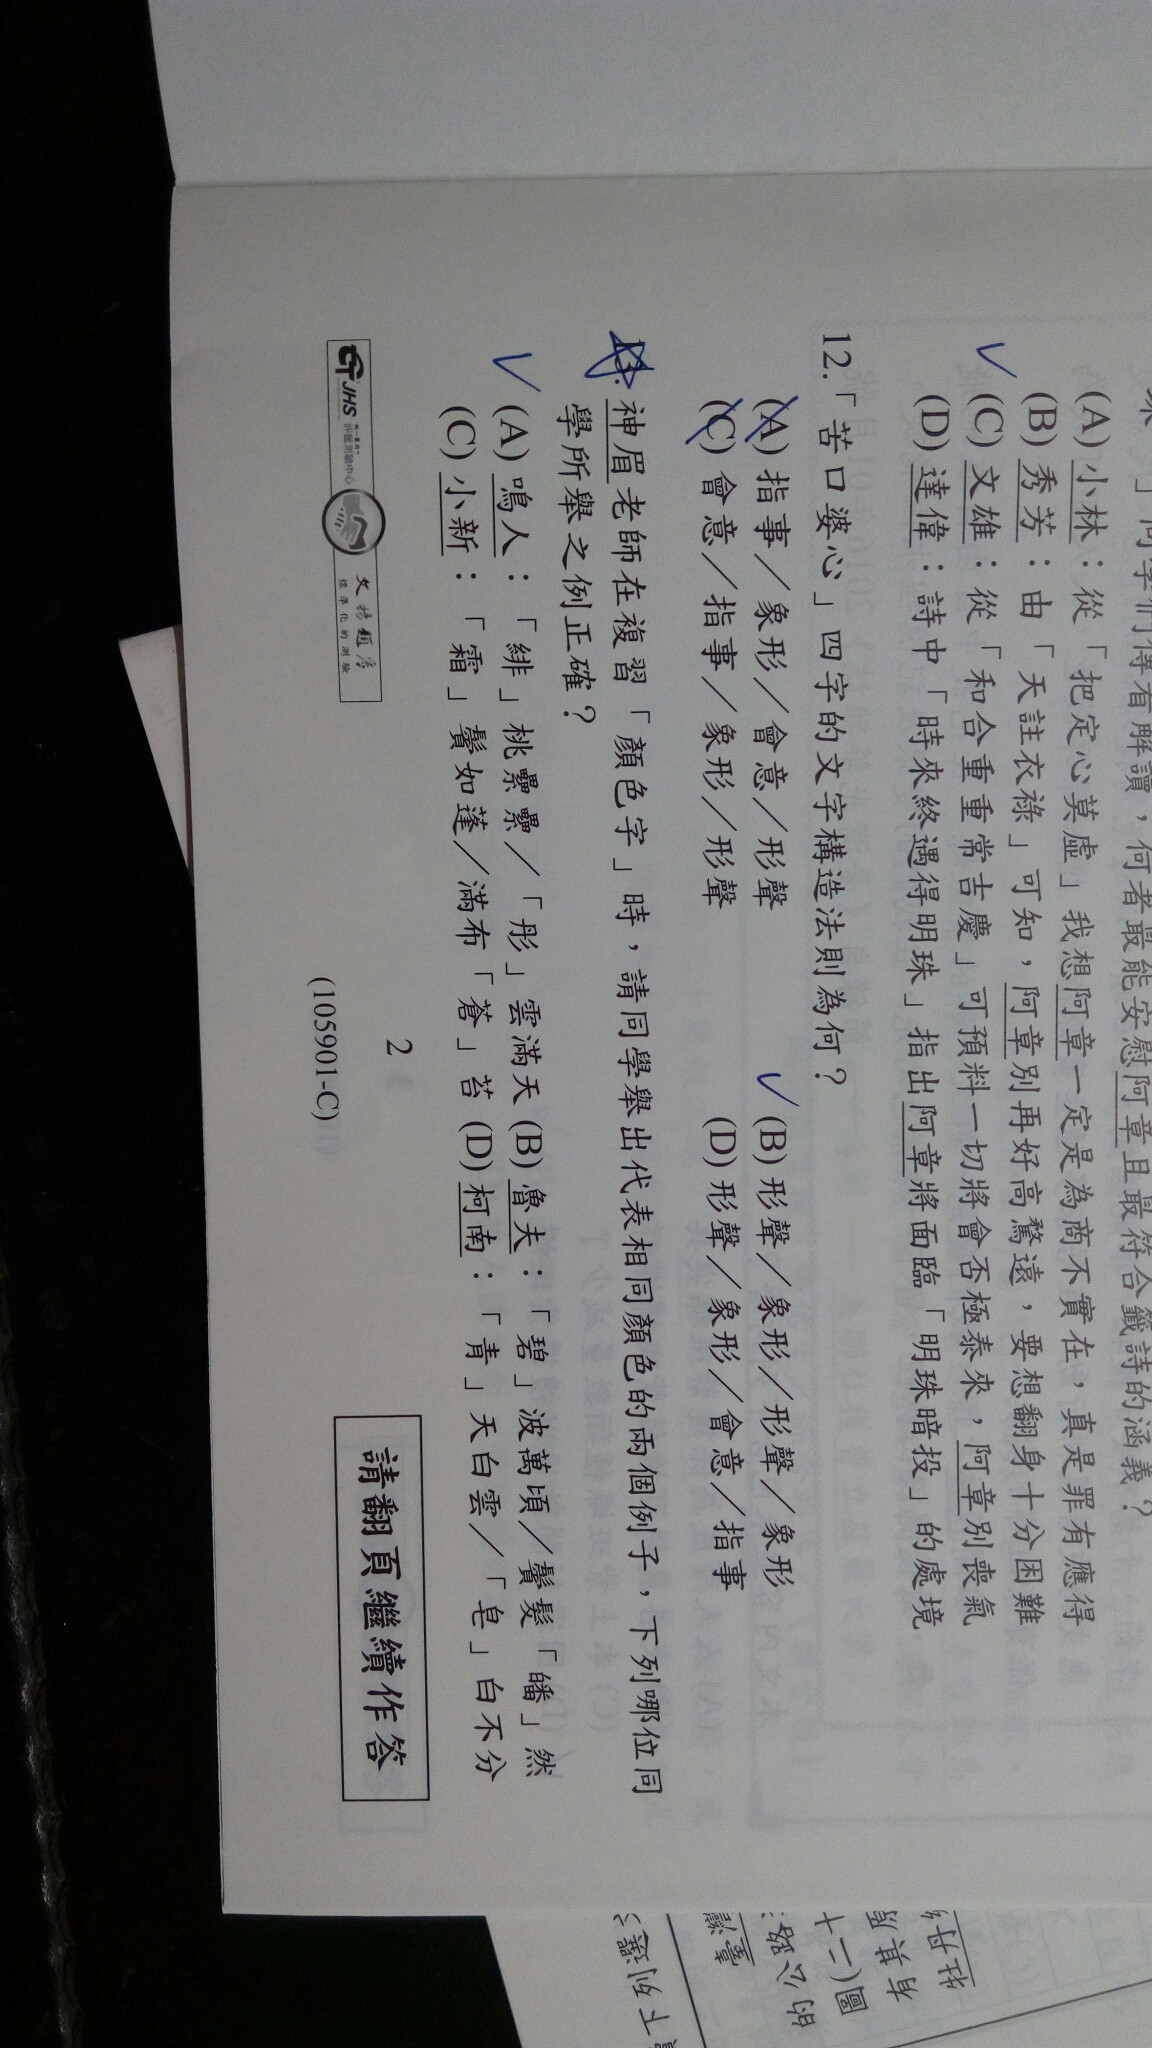 」同學們傳有解讀，何者最能安慰阿章且最符合籤詩的涵義？
(A) 小林：從「把定心莫虛」我想阿章一定是為商不實在，真是罪有應得
(B) 秀芳：由「天註衣祿」可知，阿章別再好高騖遠，要想翻身十分困難
(C) 文雄：從「和合重重常吉慶」可預料一切將會否極泰來，阿章別喪氣
(D) 達偉：詩中「時來終遇得明珠」指出阿章將面臨「明珠暗投」的處境
12.「苦口婆心」四字的文字構造法則為何？
(A) 指事／象形／會意／形聲 (B) 形聲／象形／形聲／象形
(C) 會意／指事／象形／形聲 (D) 形聲／象形／會意／指事
13. 神眉老師在複習「顏色字」時，請同學舉出代表相同顏色的兩個例子，下列哪位同
學所舉之例正確？
(A) 鳴人：「緋」桃纍纍／「彤」雲滿天 (B) 魯夫：「碧」波萬頃／鬢髮「皤」然
(C) 小新：「霜」鬢如蓬／滿布「蒼」苔 (D) 柯南：「青」天白雲／「皂」白不分
JHS 評量測驗中心 文揚題庫 標準化的測驗
2
請翻頁繼續作答
(105901-C)